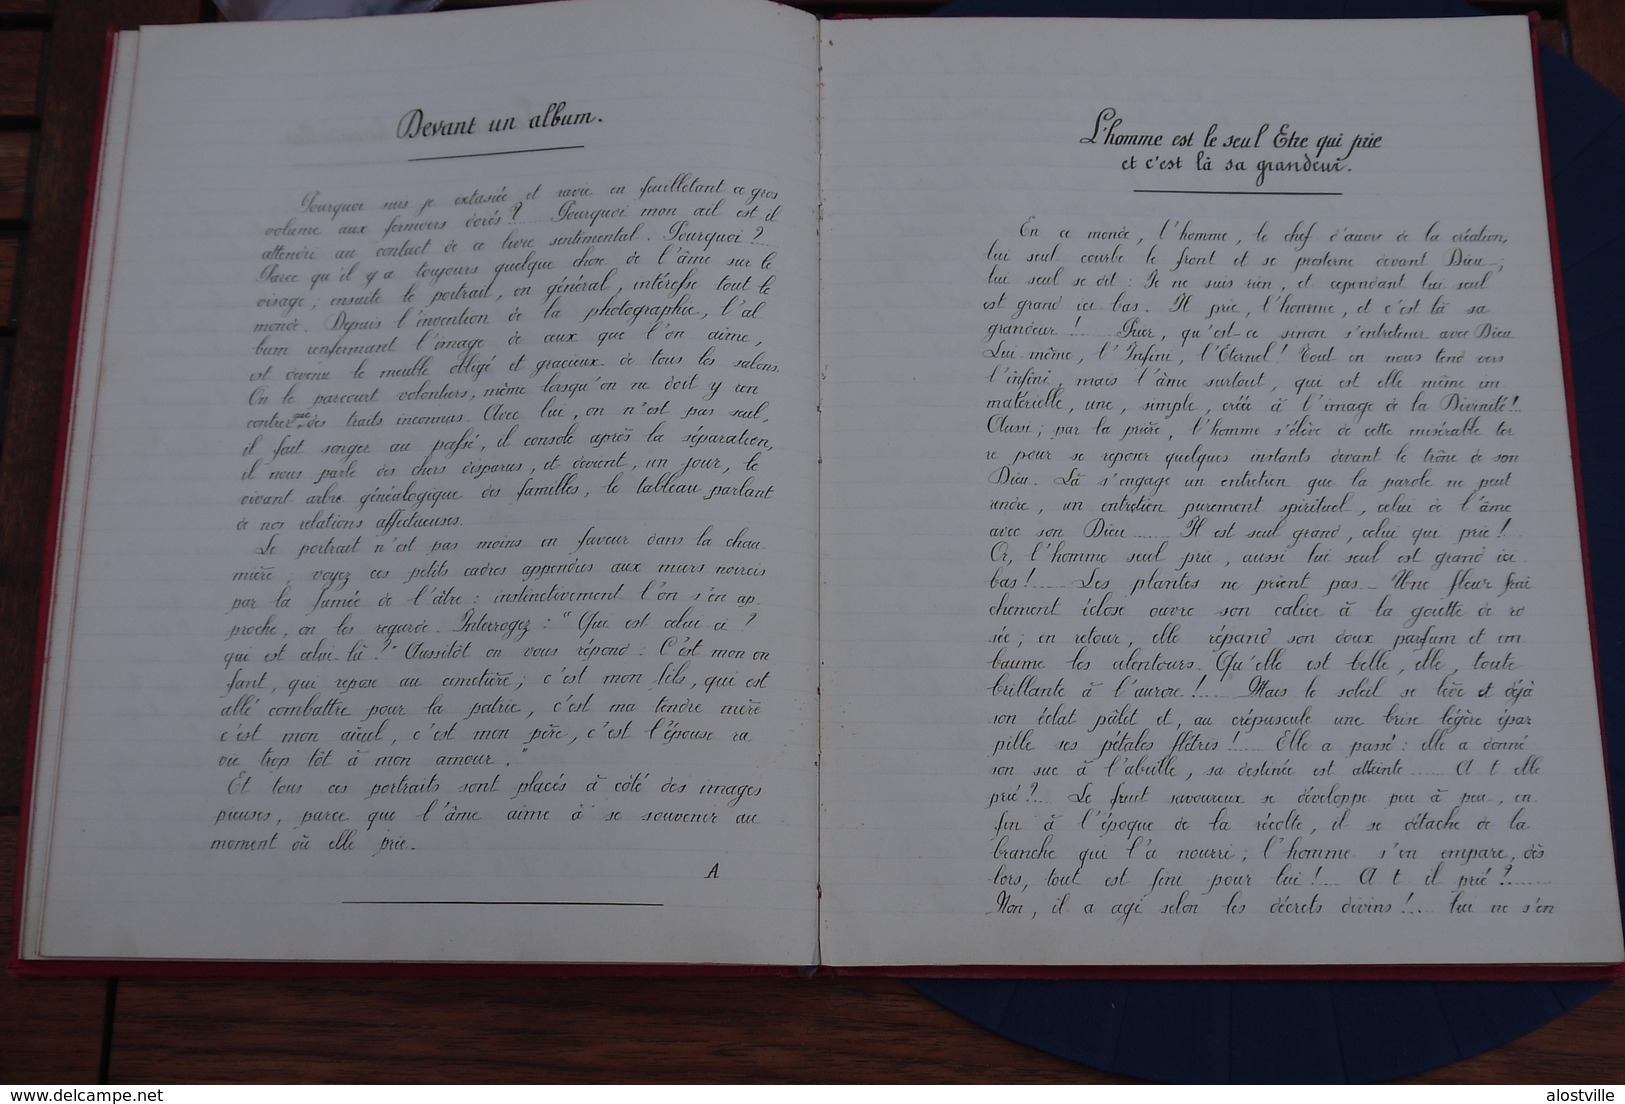 Devant un album.
Pourquoi suis je extasiée et ravie en feuilletant ce gros
volume aux fermoirs dorés ? Pourquoi mon œil est il
attendri au contact de ce livre sentimental. Pourquoi ?...
Parce qu'il y a toujours quelque chose de l'âme sur le
visage ; ensuite le portrait, en général, intéresse tout le
monde. Depuis l'invention de la photographie, l'al
bum renfermant l'image de ceux que l'on aime,
est devenu le meuble obligé et gracieux de tous les salons.
On le parcourt volontiers, même lorsqu'on ne doit y ren
contrer que des traits inconnus. Avec lui, on n'est pas seul,
il fait songer au passé, il console après la séparation,
il nous parle des chers disparus, et devient, un jour, le
vivant arbre généalogique des familles, le tableau parlant
de nos relations affectueuses.
Le portrait n'est pas moins en faveur dans la chau
mière ; voyez ces petits cadres appendus aux murs noircis
par la fumée de l'âtre : instinctivement l'on s'en ap.
proche, on les regarde. Interrogez : "Qui est celui ci ?
qui est celui-là ?" Aussitôt on vous répond : C'est mon en
fant, qui repose au cimetière ; c'est mon fils, qui est
allé combattre pour la patrie, c'est ma tendre mère
c'est mon aïeul, c'est mon père, c'est l'épouse ra
vie trop tôt à mon amour."
Et tous ces portraits sont placés à côté des images
pieuses, parce que l'âme aime à se souvenir au
moment où elle prie.
A
L'homme est le seul Etre qui prie
et c'est là sa grandeur.
En ce monde, l'homme, le chef d'œuvre de la création,
lui seul courbe le front et se prosterne devant Dieu ;
lui seul se dit : Je ne suis rien, et cependant lui seul
est grand ici bas. Il prie, l'homme, et c'est là sa
grandeur !... Prier, qu'est-ce sinon s'entretenir avec Dieu
Lui-même, l'Infini, l'Eternel ! Tout en nous tend vers
l'infini, mais l'âme surtout, qui est elle même im
matérielle, une, simple, créée à l'image de la Divinité !..
Aussi ; par la prière, l'homme s'élève de cette misérable ter
re pour se reposer quelques instants devant le trône de son
Dieu. Là s'engage un entretien que la parole ne peut
rendre, un entretien purement spirituel, celui de l'âme
avec son Dieu ....... Il est seul grand, celui qui prie !..
Or, l'homme seul prie, aussi lui seul est grand ici
bas !..... Les plantes ne prient pas - Une fleur fraî
chement éclose ouvre son calice à la goutte de ro
sée ; en retour, elle répand son doux parfum et em
baume les alentours. Qu'elle est belle, elle, toute
brillante à l'aurore !.... Mais le soleil se lève et déjà
son éclat pâlit et, au crépuscule une brise légère épar
pille ses pétales flétris !.... Elle a passé : elle a donné
son suc à l'abeille, sa destinée est atteinte ...... A t elle
prié ?... Le fruit savoureux se développe peu à peu, en
fin à l'époque de la récolte, il se détache de la
branche qui l'a nourri ; l'homme s'en empare, dès
lors, tout est fini pour lui !.... A t il prié ?........
Non, il a agi selon les décrets divins !.... lui ne s'en
delcampe.net
alostville